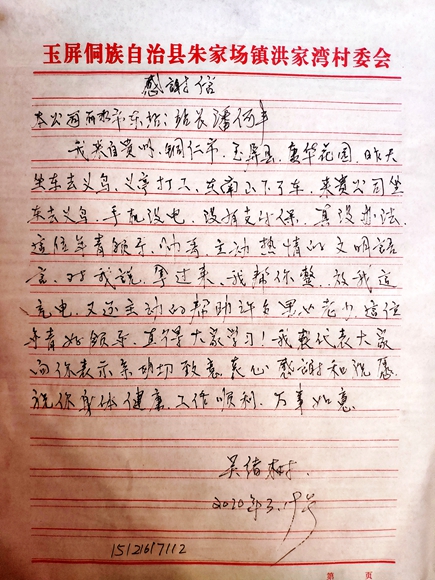 玉屏侗族自治县朱家场镇洪家湾村委会
感谢信
本公司丽水市东站：站长潘何丰
我来自贵州、铜仁市、玉屏县、嘉华花园，昨天
坐车去义乌、义亭打工、东南山下了车，来贵公司坐
车去义乌，手机没电，没有支付保，真没办法，
这位年青领导、帅哥，主动热情的文明语
言，对我说，拿过来，我帮你整，放我这
充电，又还主动的帮助许多男女老少，这位
年青好领导，真得大家学习！我要代表大家
向你表示亲切致意衷心感谢和祝愿
祝你身体健康、工作顺利，万事如意
吴绪
2020年3.19号
15121617112
第 页